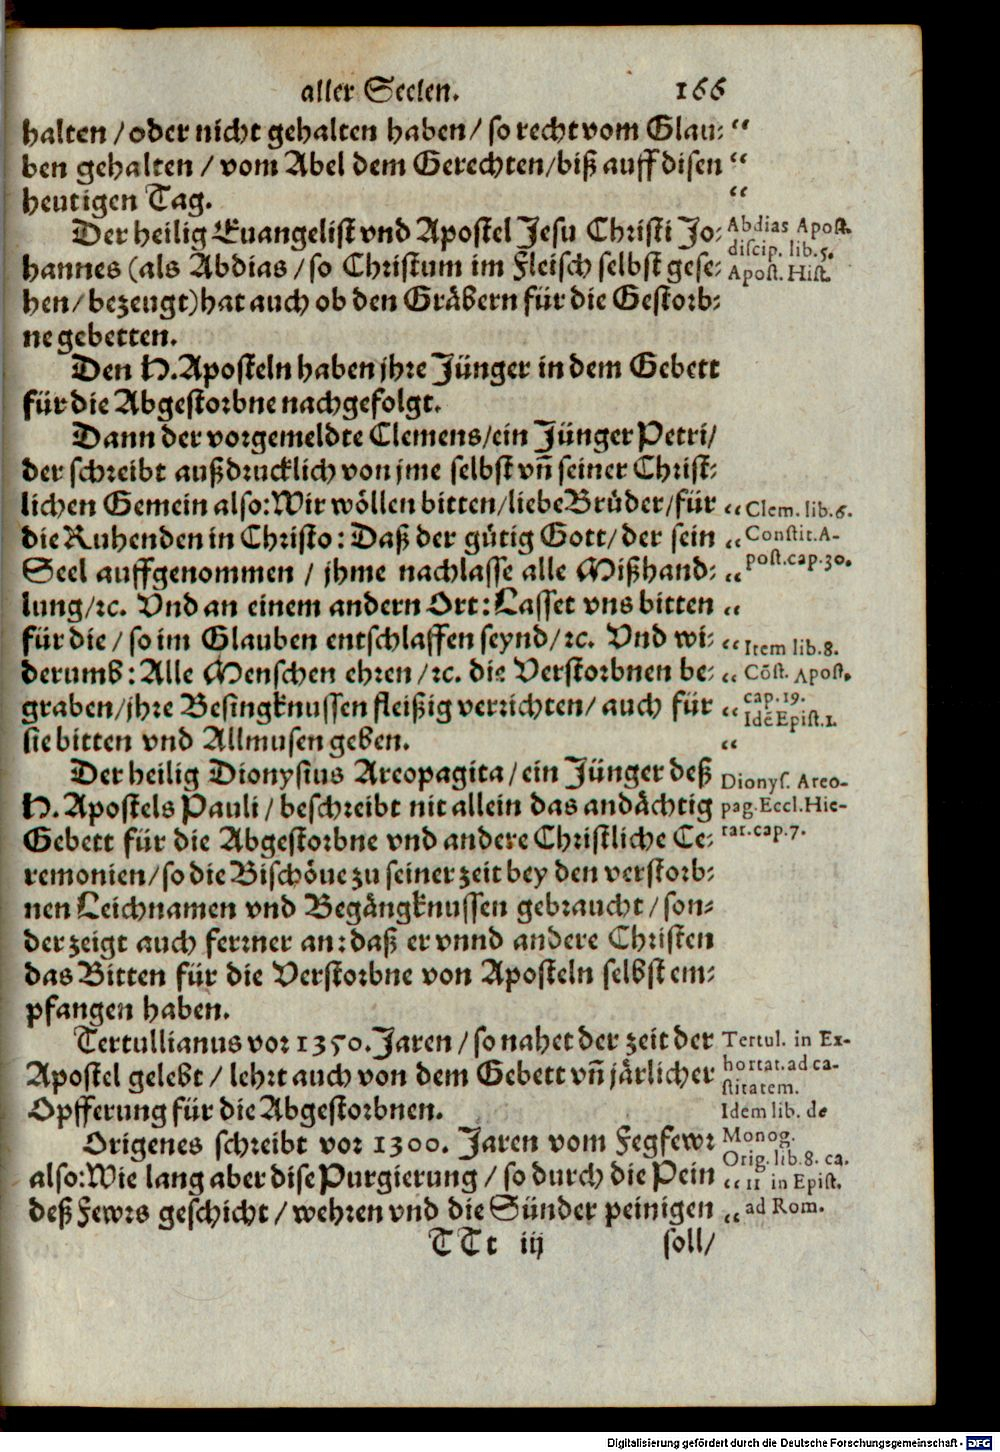 aller Seelen. 166
halten / oder nicht gehalten haben / so recht vom Glau- “
ben gehalten / vom Abel dem Gerechten / biß auff disen “
heutigen Tag. “
Der heilig Euangelist vnd Apostel Jesu Christi Jo-
hannes (als Abdias / so Christum im Fleisch selbst gese-
hen / bezeugt) hat auch ob den Gräbern für die Gestorb-
ne gebetten.
Abdias Apost.
discip. lib. 5.
Apost. Hist.
Den H. Aposteln haben jhre Jünger in dem Gebett
für die Abgestorbne nachgefolgt.
Dann der vorgemeldte Clemens / ein Jünger Petri /
der schreibt außdrucklich von jme selbst vñ seiner Christ-
lichen Gemein also: Wir wöllen bitten / liebe Brüder / für “
die Ruhenden in Christo: Daß der gütig Gott / der sein “
Seel auffgenommen / jhme nachlasse alle Mißhand- “
lung / ꝛc. Vnd an einem andern Ort: Lasset vns bitten “
für die / so im Glauben entschlaffen seynd / ꝛc. Vnd wi- “
derumb: Alle Menschen ehren / ꝛc. die Verstorbnen be- “
graben / jhre Besingknussen fleißig verrichten / auch für “
sie bitten vnd Allmusen geben. “
Clem. lib. 6.
Constit. A-
post. cap. 30.
Item lib. 8.
Cōst. Apost.
cap. 19.
Idē Epist. 1.
Der heilig Dionysius Areopagita / ein Jünger deß
H. Apostels Pauli / beschreibt nit allein das andächtig
Gebett für die Abgestorbne vnd andere Christliche Ce-
remonien / so die Bischöue zu seiner zeit bey den verstorb-
nen Leichnamen vnd Begängknussen gebraucht / son-
der zeigt auch ferrner an: daß er vnnd andere Christen
das Bitten für die Verstorbne von Aposteln selbst em-
pfangen haben.
Dionys. Areo-
pag. Eccl. Hie-
rar. cap. 7.
Tertullianus vor 1350. Jaren / so nahet der zeit der
Apostel gelebt / lehrt auch von dem Gebett vñ järlicher
Opfferung für die Abgestorbnen.
Tertul. in Ex-
hortat. ad ca-
stitatem.
Idem lib. de
Monog.
Origenes schreibt vor 1300. Jaren vom Fegfewr
also: Wie lang aber dise Purgierung / so durch die Pein “
deß Fewrs geschicht / wehren vnd die Sünder peinigen “
Orig. lib. 8. ca.
11 in Epist.
ad Rom.
TTt iij soll /
Digitalisierung gefördert durch die Deutsche Forschungsgemeinschaft - DFG